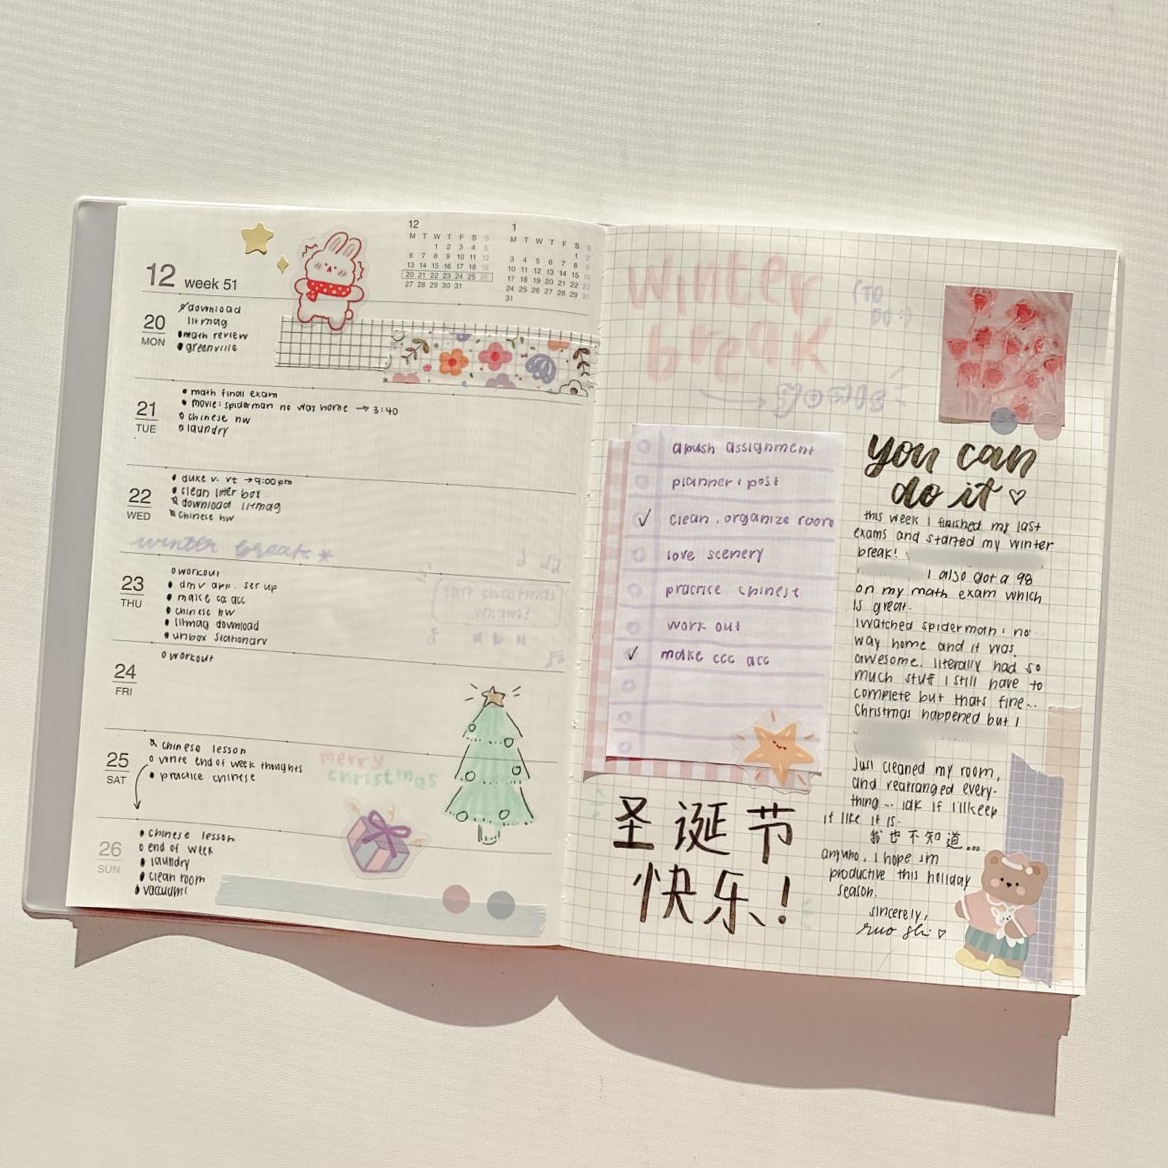 12 week 51
12
M T W T F S S
1 2 3 4 5
6 7 8 9 10 11 12
13 14 15 16 17 18 19
20 21 22 23 24 25 26
27 28 29 30 31
1
M T W T F S S
1 2
3 4 5 6 7 8 9
10 11 12 13 14 15 16
17 18 19 20 21 22 23
24 25 26 27 28 29 30
31
20
MON
download
litmag
math review
greenville
21
TUE
math final exam
movie: spiderman no way home → 3:40
chinese hw
laundry
22
WED
duke v. vt → 9:00pm
clean litter box
download litmag
chinese hw
winter break *
23
THU
workout
dmv app. set up
make cc acc
chinese hw
litmag download
unbox stationary
24
FRI
workout
25
SAT
chinese lesson
write end of week thoughts
practice chinese
merry
christmas
26
SUN
chinese lesson
end of week
laundry
clean room
vacuum!
winter
break
(TO
DO:)
→ goals
apush assignment
planner: post
✓ clean, organize room
love scenery
practice chinese
work out
✓ make ccc acc
圣诞节
快乐!
you can
do it ♡
this week i finished my last
exams and started my winter
break!
I also got a 98
on my math exam which
is great.
I watched spiderman: no
way home and it was
awesome. literally had so
much stuff I still have to
complete but thats fine...
Christmas happened but I
Just cleaned my room,
and rearranged every-
thing... idk if I'll keep
it like it is.
我也不知道...
anywho, i hope im
productive this holiday
season.
sincerely,
ruo shi ♡